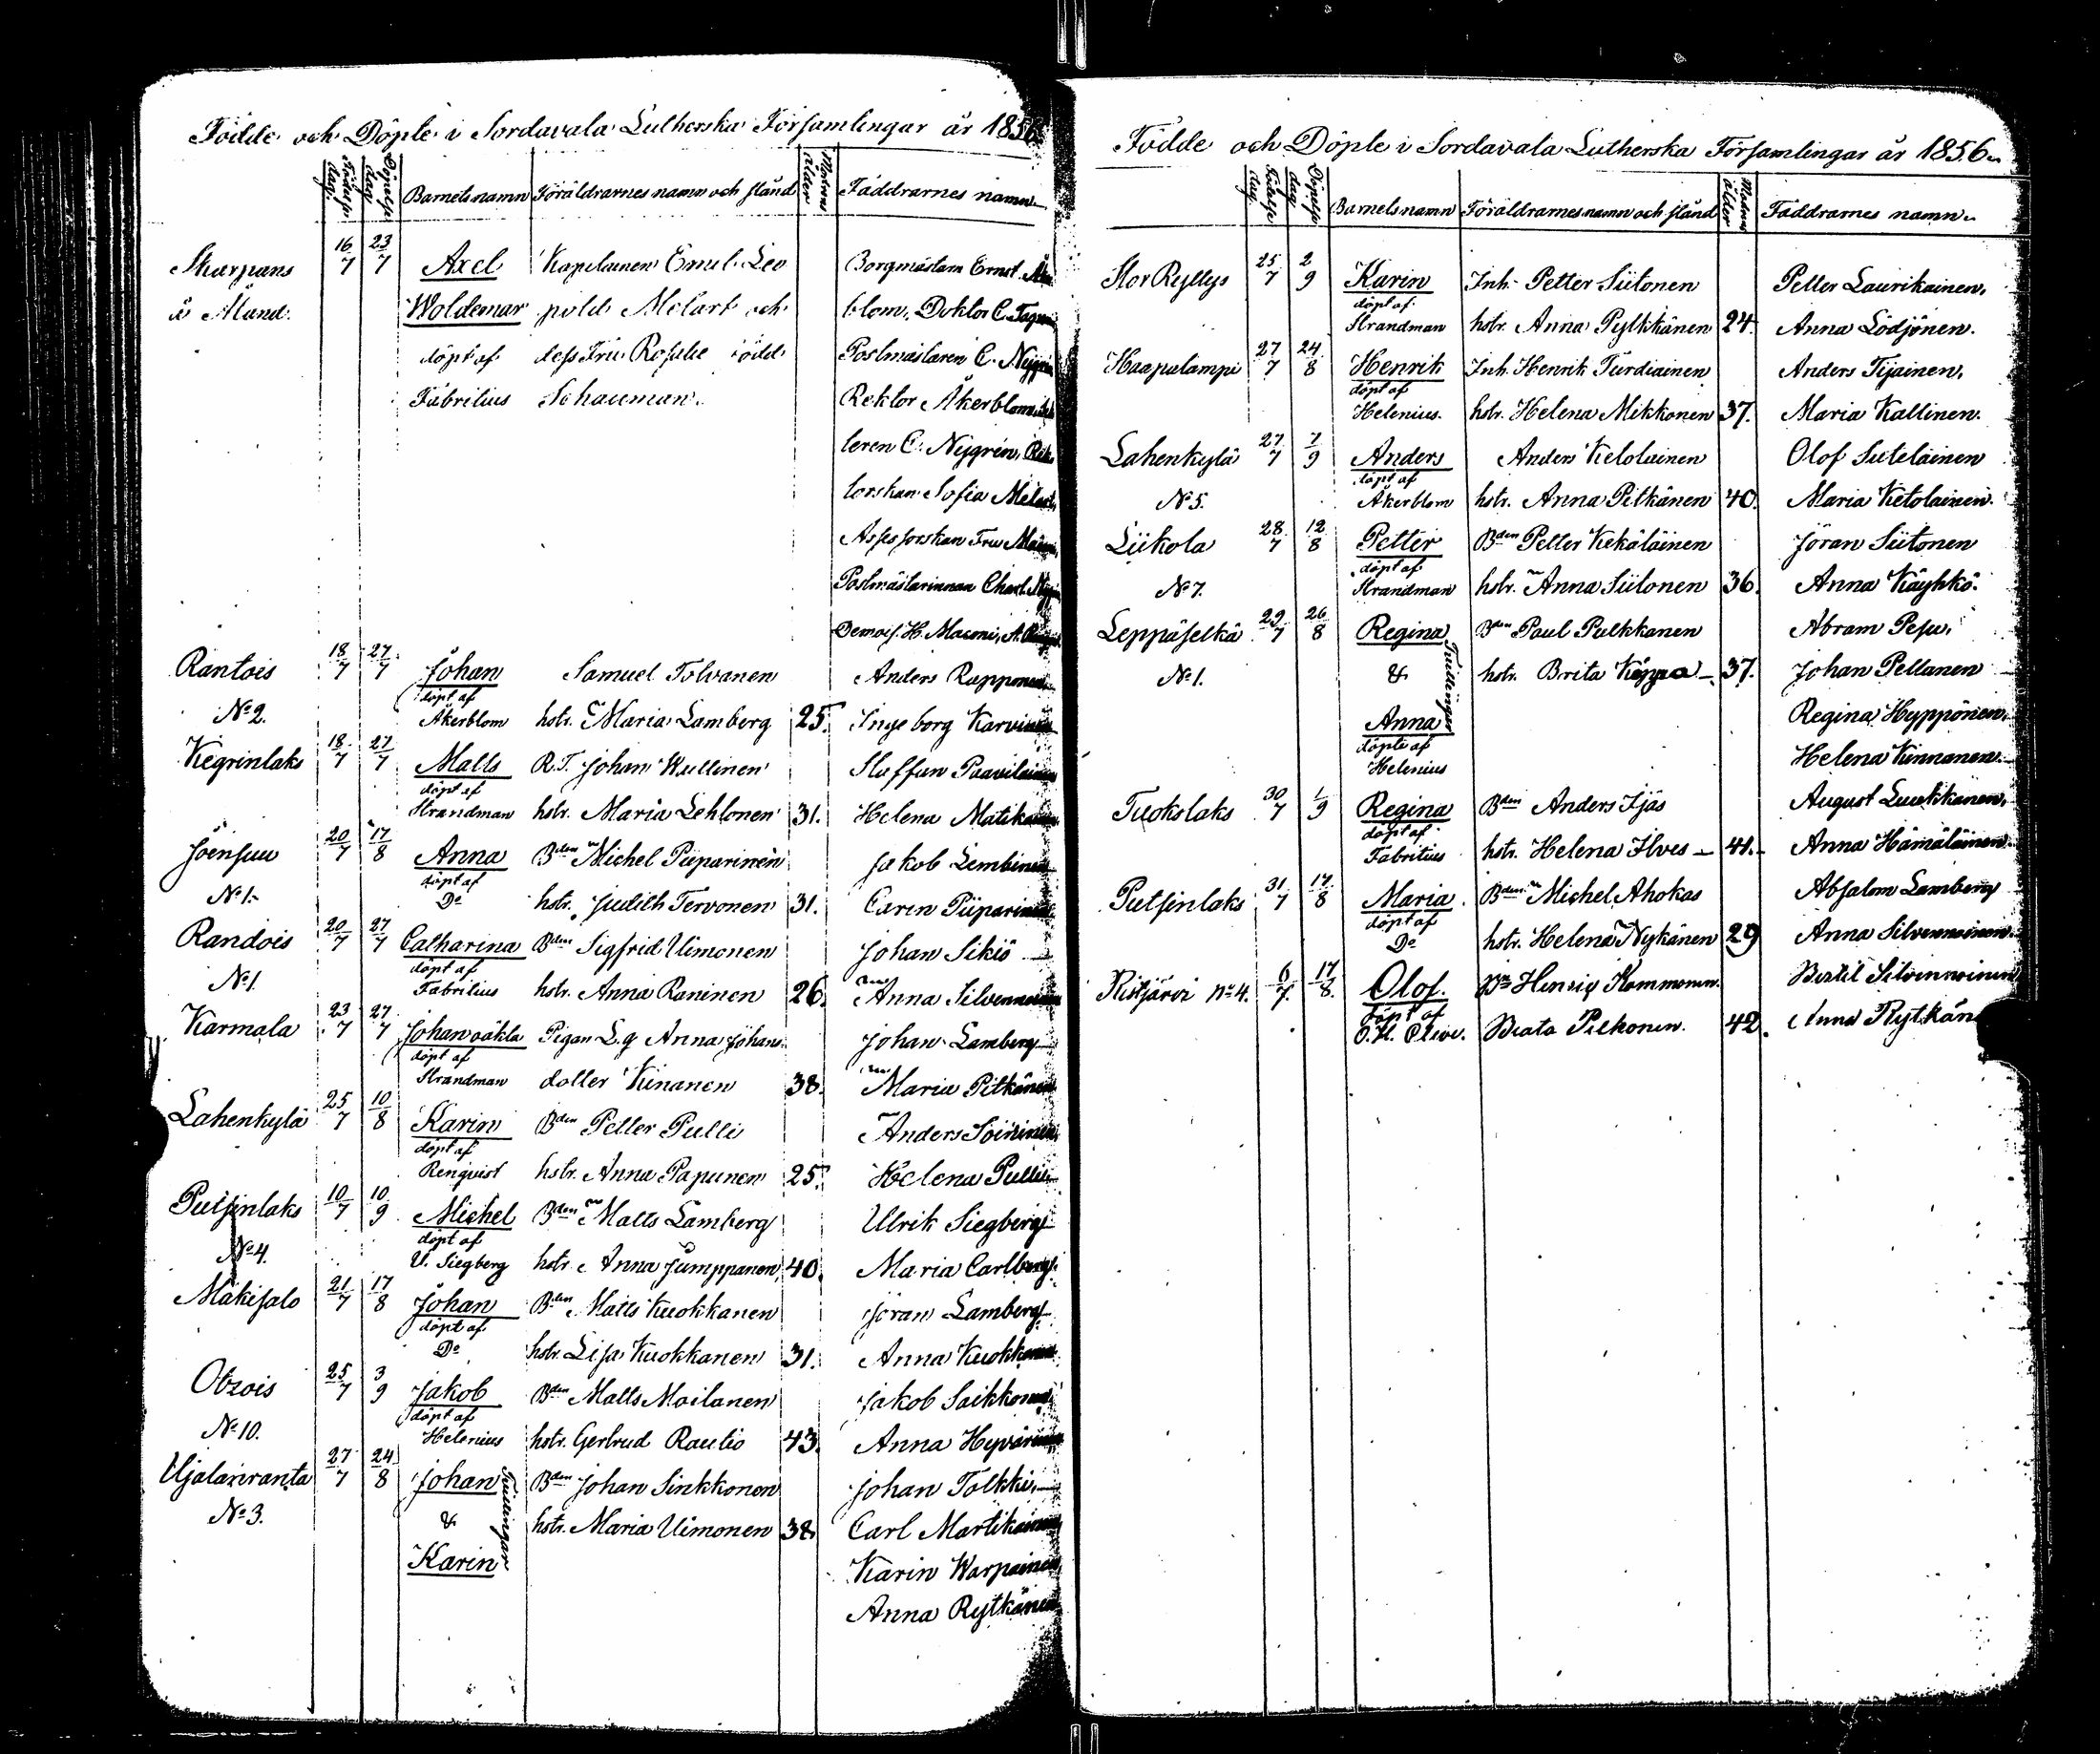 Födde och Döpte i Sordavala Lutherska Församlingar år 1856
Födelse dag. Döpelse dag Barnets namn Föräldrarnes namn och stånd Modrens ålder Faddrarnes namn
Skarpans 16/7 23/7 Axel Kapitainen Emil Leo Borgmästarn Ernst
å Åland. Woldemar pold Melart och blom, Doktor C.
döpt af dess Fru Rosalie född Postmästaren C.
Fabritius Schauman. Rektor Åkerblom,
leren C. Nygrén,
torskan Sofia
Assessorskan Fru
Postmästarinnan Charl.
Demois. H.
Rantois 18/7 27/7 Johan Samuel Tolvanen Anders Rapponen
No 2. döpt af Åkerblom hstr. Maria Lamberg 25. Ingeborg
Kegrinlaks 18/7 27/7 Matts R.T. Johan Wullinen Staffan Paavilainen
döpt af Strandman hstr. Maria Lehtonen 31. Helena
Joensuu 20/7 17/8 Anna Bden Michel Piiparinen Jakob Lembinen
No 1. döpt af Do hstr. Judith Tervonen 31. Carin Piiparinen
Randois 20/7 27/7 Catharina Bden Sigfrid Uimonen Johan Sikiö
No 1. döpt af Fabritius hstr. Anna Raninen 26. Anna Silvennoinen
Karmala 23/7 27/7 Johan oäkta Pigan L.g Anna Johans Johan Lamberg
döpt af Strandman dotter Kinanen 38. Maria Pitkänen
Lahenkylä 25/7 10/8 Karin Bden Petter Pulli Anders Soininen
döpt af Renqvist hstr. Anna Papunen 25. Helena Pulli
Putsinlaks 10/7 10/9 Michel Bden Matts Lamberg Ulrik Siegberg
No 4. döpt af U. Siegberg hstr. Anna Jumppanen 40. Maria Carlberg
Mäkisalo 21/7 17/8 Johan Bden Matts Kuokkanen Jöran Lamberg
döpt af Do hstr. Lisa Kuokkanen 31. Anna Kuokkanen
Otzois 25/7 3/9 Jakob Bden Matts Moilanen Jakob Saikkonen
No 10. döpt af Helenius hstr. Gertrud Rautio 43. Anna Hyvärinen
Ujalanranta 27/7 24/8 Johan Bden Johan Sinkkonen Johan Tolkki
No 3. & Tvillingar hstr. Maria Uimonen 38. Carl Martikainen
Karin Karin Warpainen
Anna Rytkänen
Födde och Döpte i Sordavala Lutherska Församlingar år 1856.
Födelse dag. Döpelse dag Barnets namn Föräldrarnes namn och stånd Modrens ålder Faddrarnes namn.
Stor Ryttys 25/7 2/9 Karin Inh. Petter Siitonen Petter Laurikainen.
döpt af Strandman hstr. Anna Pylkkänen 24. Anna Lödjönen.
Haapalampi 27/7 24/8 Henrik Inh. Henrik Turdiainen Anders Tijainen.
döpt af Helenius. hstr. Helena Mikkonen 37. Maria Kallinen.
Lahenkylä 27/7 7/9 Anders Anders Ketolainen Olof Suteläinen
No 5. döpt af Åkerblom hstr. Anna Pitkänen 40. Maria Ketolainen.
Liikola 28/7 12/8 Petter Bden Petter Kekäläinen Jöran Siitonen
No 7. döpt af Strandman hstr. Anna Siitonen 36. Anna Käyhkö.
Leppäselkä 29/7 26/8 Regina Bden Paul Pulkkanen Abram Pesu.
No 1. & Tvillingar hstr. Brita 37. Johan Peltanen
Anna Regina Hyppönen.
döpte af Helenius Helena Kinnanen.
Tuokslaks 30/7 1/9 Regina Bden Anders Ijäs August Luukkanen.
döpt af Fabritius hstr. Helena Ilves 41. Anna Hämäläinen.
Putsinlaks 31/7 17/8 Maria Bden Michel Ahokas Absalom Lamberg
döpt af Do hstr. Helena Nykänen 29 Anna Silvennoinen.
Ristjärvi no 4. 6/7. 17/8. Olof. Bdn Henrig Kommonen. Bertil Silvennoinen
döpt af O.H. Clive. Beata Piikonen. 42. Anna